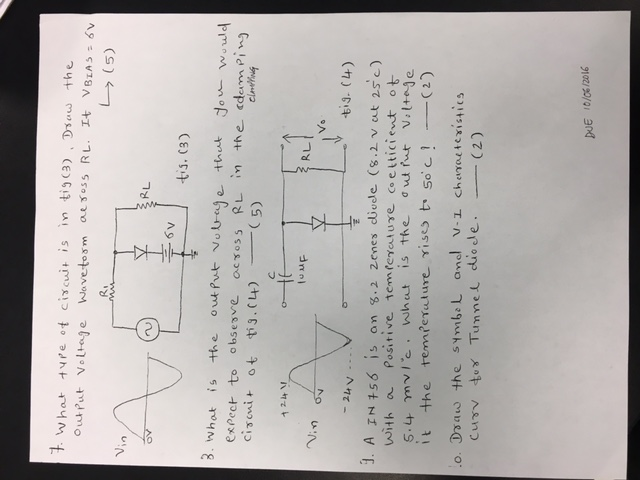 7. What type of circuit is in fig(3). Draw the
output Voltage Waveform across RL. If VBIAS = 6V
↳ (5)
Vin
0V
R1
RL
6V
fig.(3)
8. What is the output voltage that you would
expect to observe across RL in the clamping
clamping
circuit of fig.(4) — (5)
+24V
Vin
0V
-24V
C
10μF
RL
Vo
fig.(4)
9. A IN756 is an 8.2 Zener diode (8.2V at 25°C)
With a Positive temperature coefficient of
5.4 mV/°C. What is the output Voltage
if the temperature rises to 50°C? — (2)
10. Draw the symbol and V-I characteristics
curv for Tunnel diode. — (2)
DUE 10/06/2016